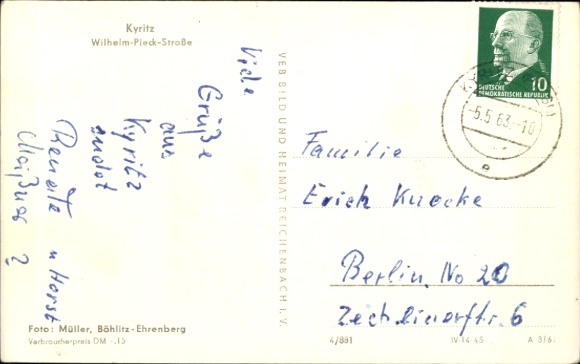 Kyritz
Wilhelm-Pieck-Straße
Viele
Grüße
aus
Kyritz
sendet
Renate u Horst
Foto: Müller, Böhlitz-Ehrenberg
Verbraucherpreis DM -.15
VEB BILD UND HEIMAT REICHENBACH I. V.
10
DEUTSCHE
DEMOKRATISCHE REPUBLIK
-5.5.63.-10
Familie
Erich Knecke
Berlin, No 20
Zechlinerstr. 6
4/881
IV-14-45
A 3/6